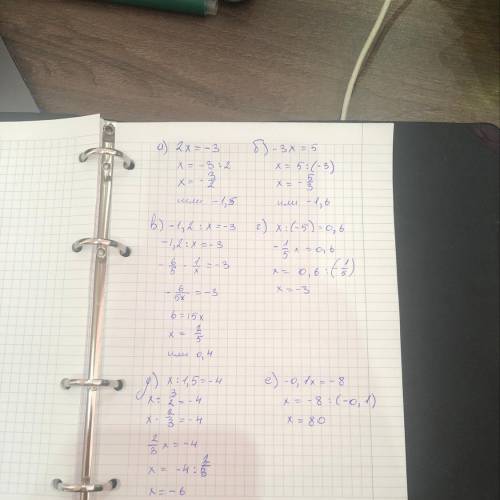 а) 2x = -3
x = -3 : 2
x = -3/2
или -1,5
б) -3x = 5
x = 5 : (-3)
x = -5/3
или -1,6
в) -1,2 : x = -3
-1,2 : x = -3
-6/5 · 1/x = -3
-6/5x = -3
6 = 15x
x = 2/5
или 0,4
г) x : (-5) = 0,6
-1/5 x = 0,6
x = 0,6 : (1/5)
x = -3
д) x : 1,5 = -4
x : 3/2 = -4
x · 2/3 = -4
2/3 x = -4
x = -4 : 2/3
x = -6
е) -0,1x = -8
x = -8 : (-0,1)
x = 80